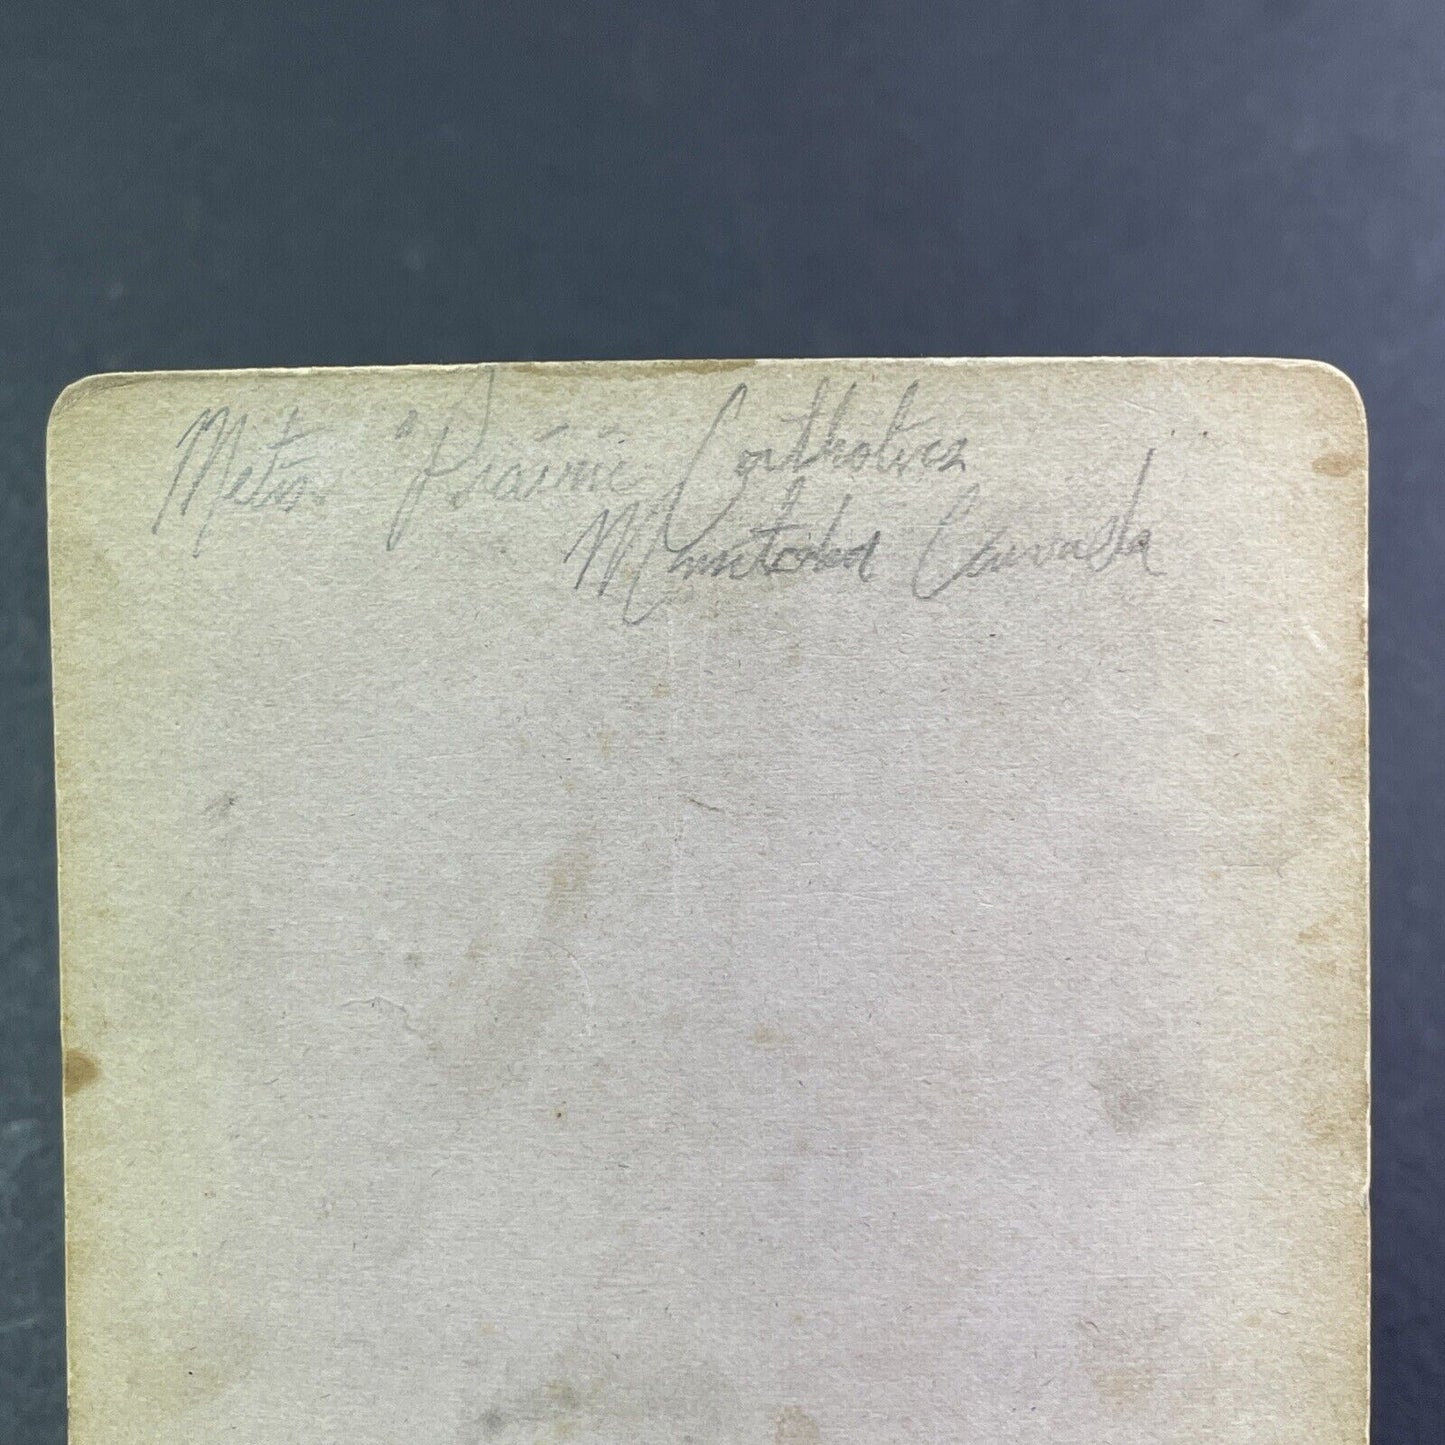 Metis Prairie Catholics
Manitoba Canada